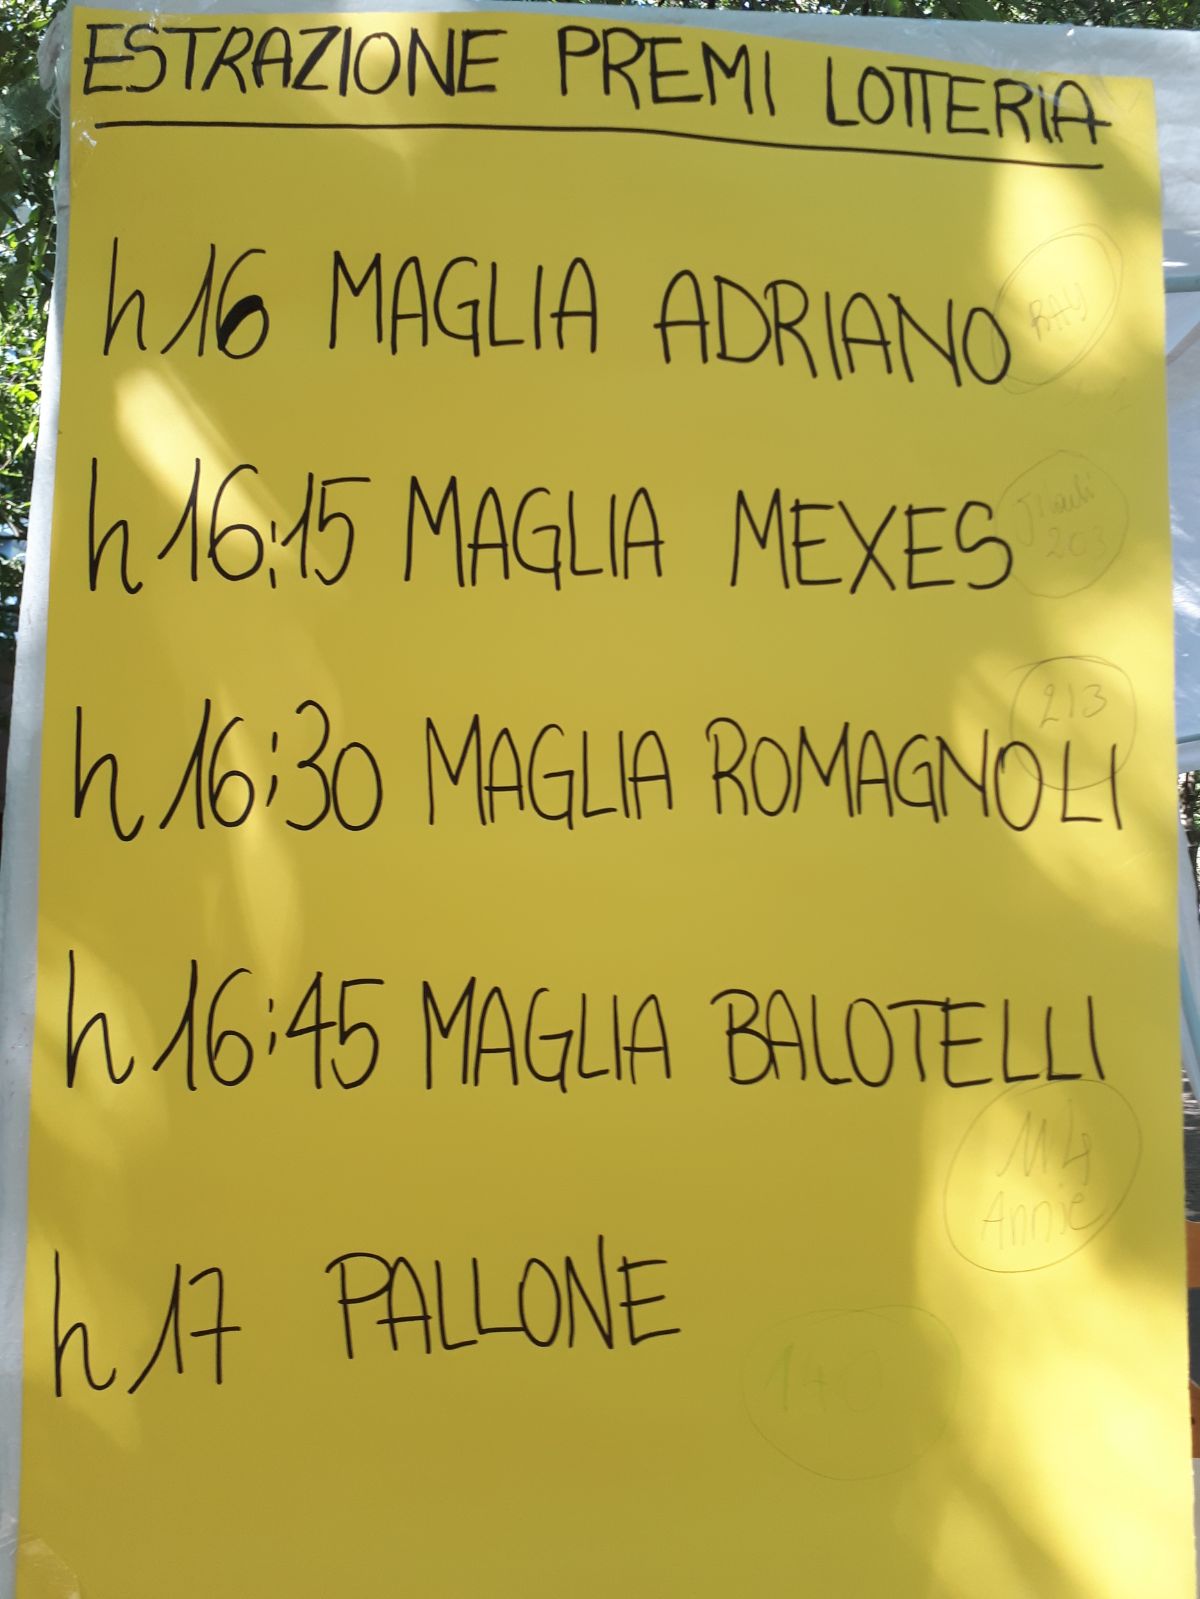 ESTRAZIONE PREMI LOTTERIA
h 16 MAGLIA ADRIANO
RAY
h 16:15 MAGLIA MEXES
203
h 16:30 MAGLIA ROMAGNOLI
213
h 16:45 MAGLIA BALOTELLI
114
Annie
h 17 PALLONE
140